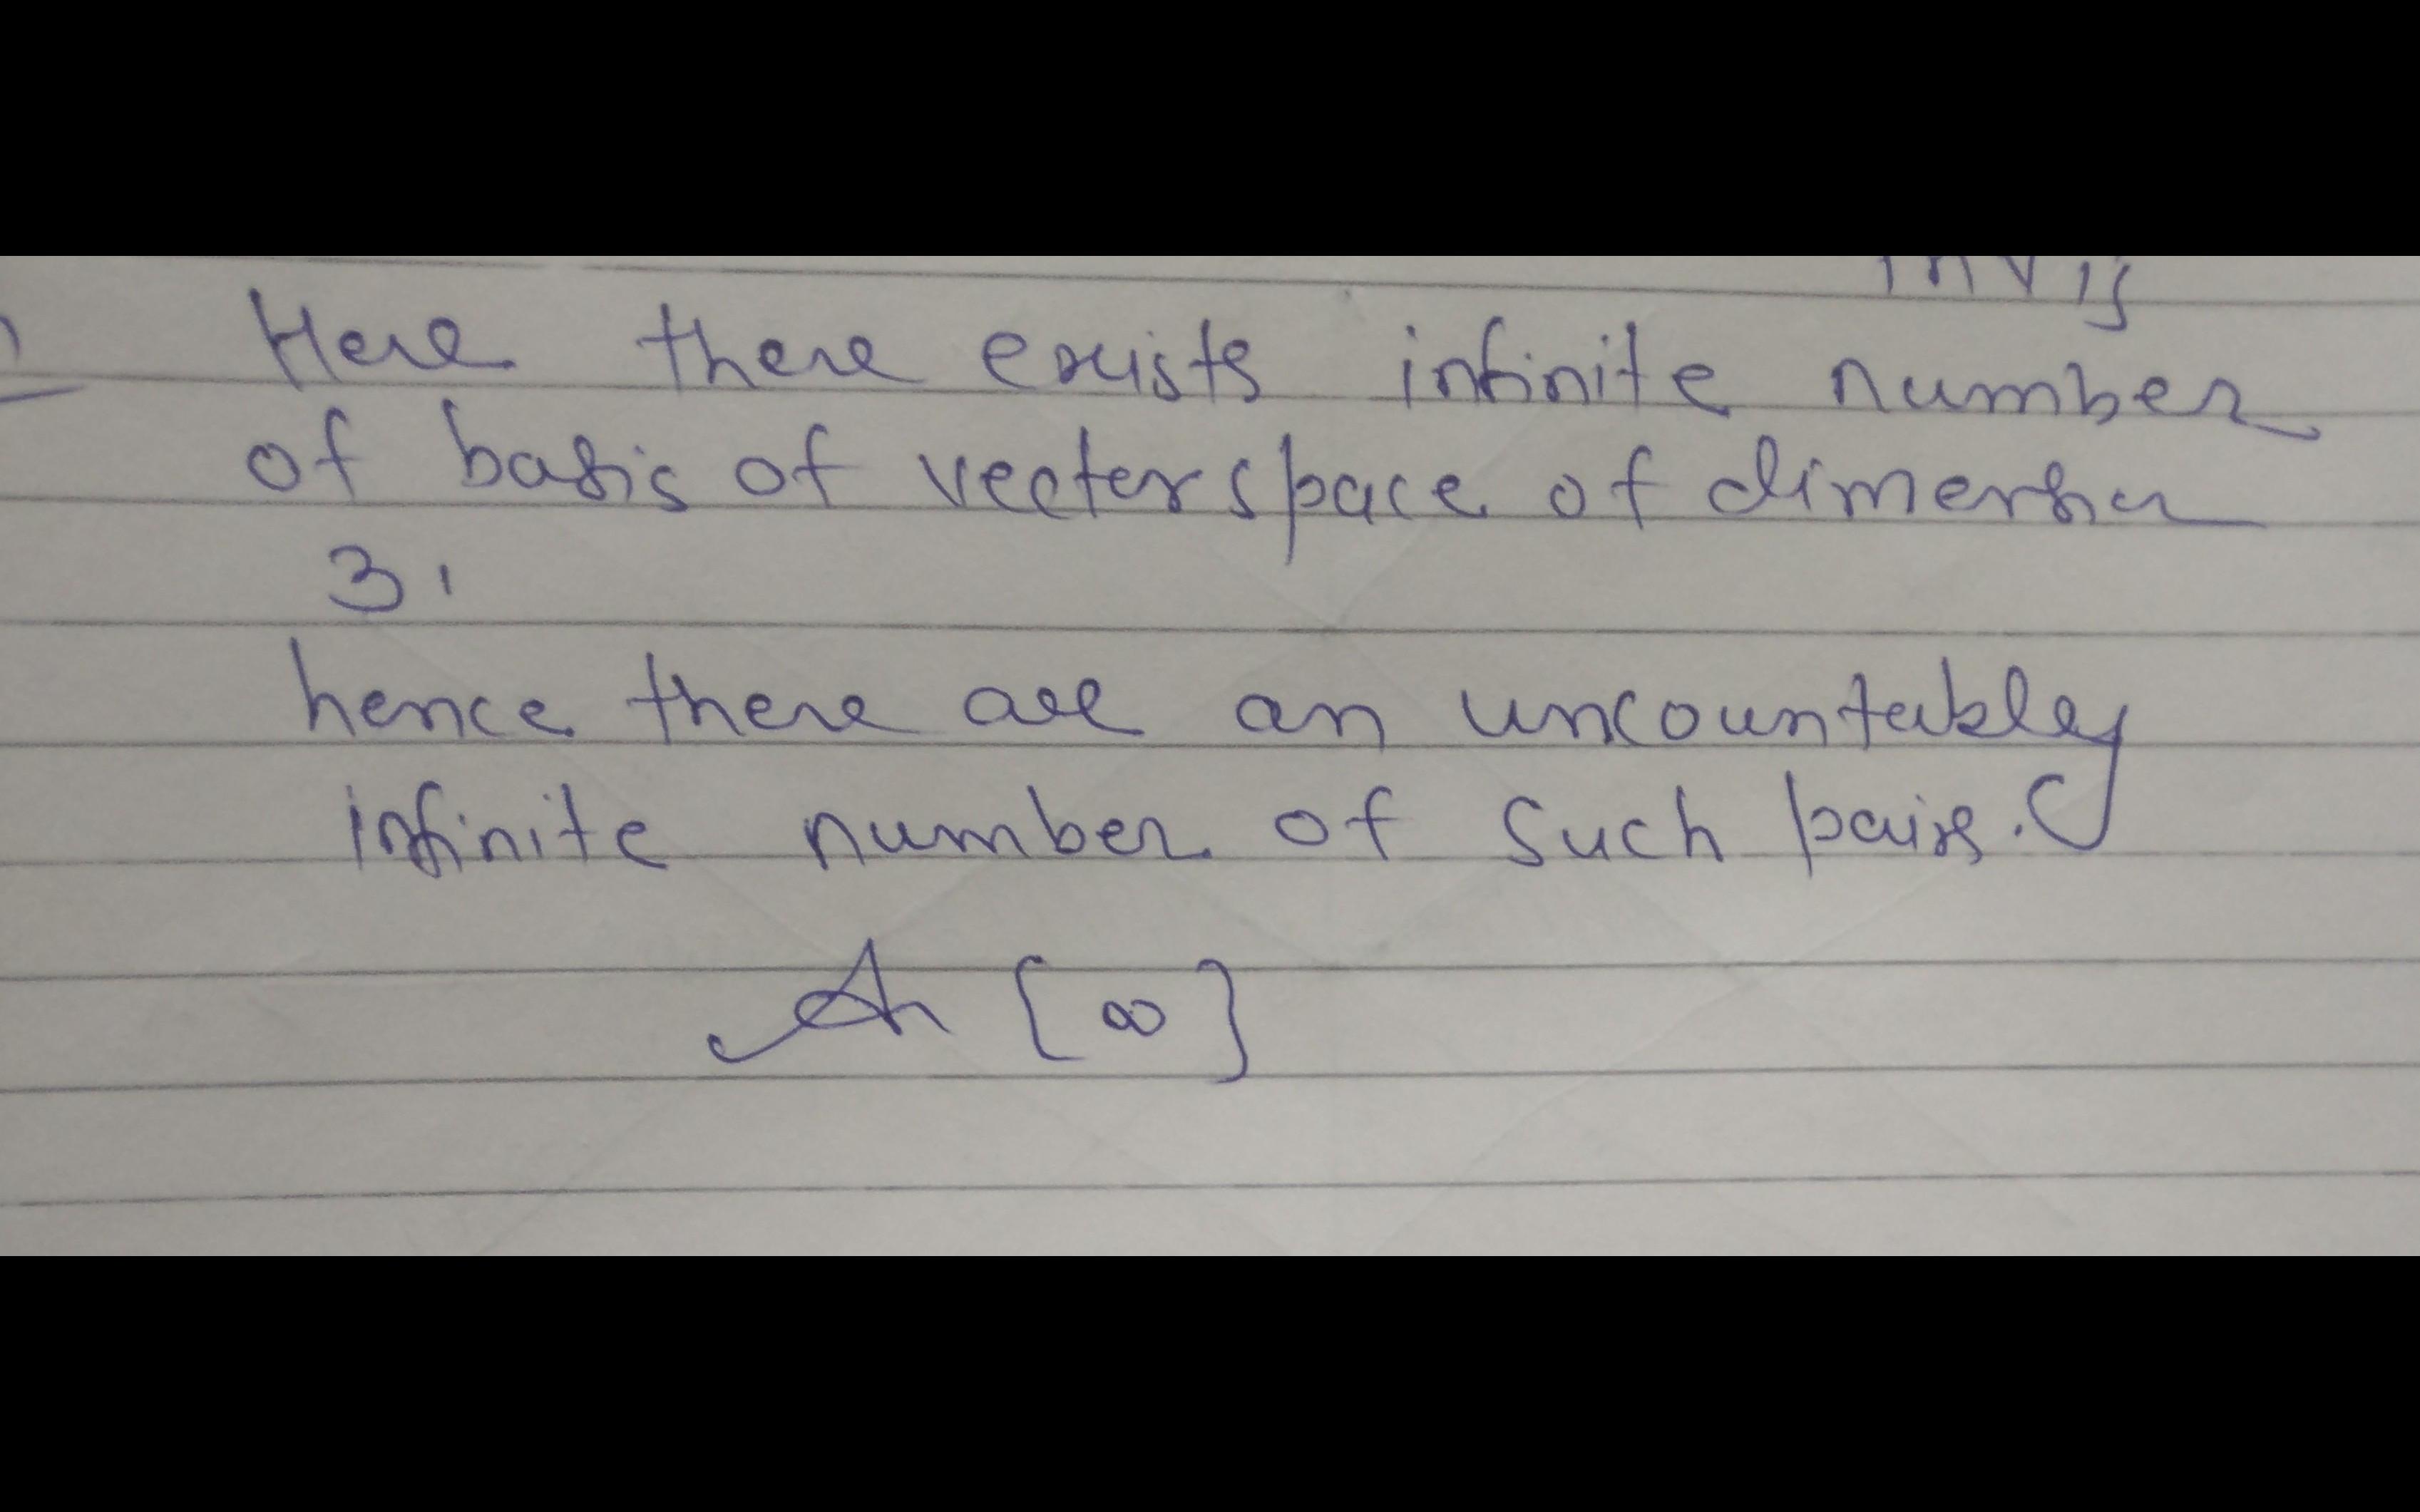 Here there exists infinite number
of basis of vector space of dimension
3.
hence there are an uncountably
infinite number of such pairs.
[∞]